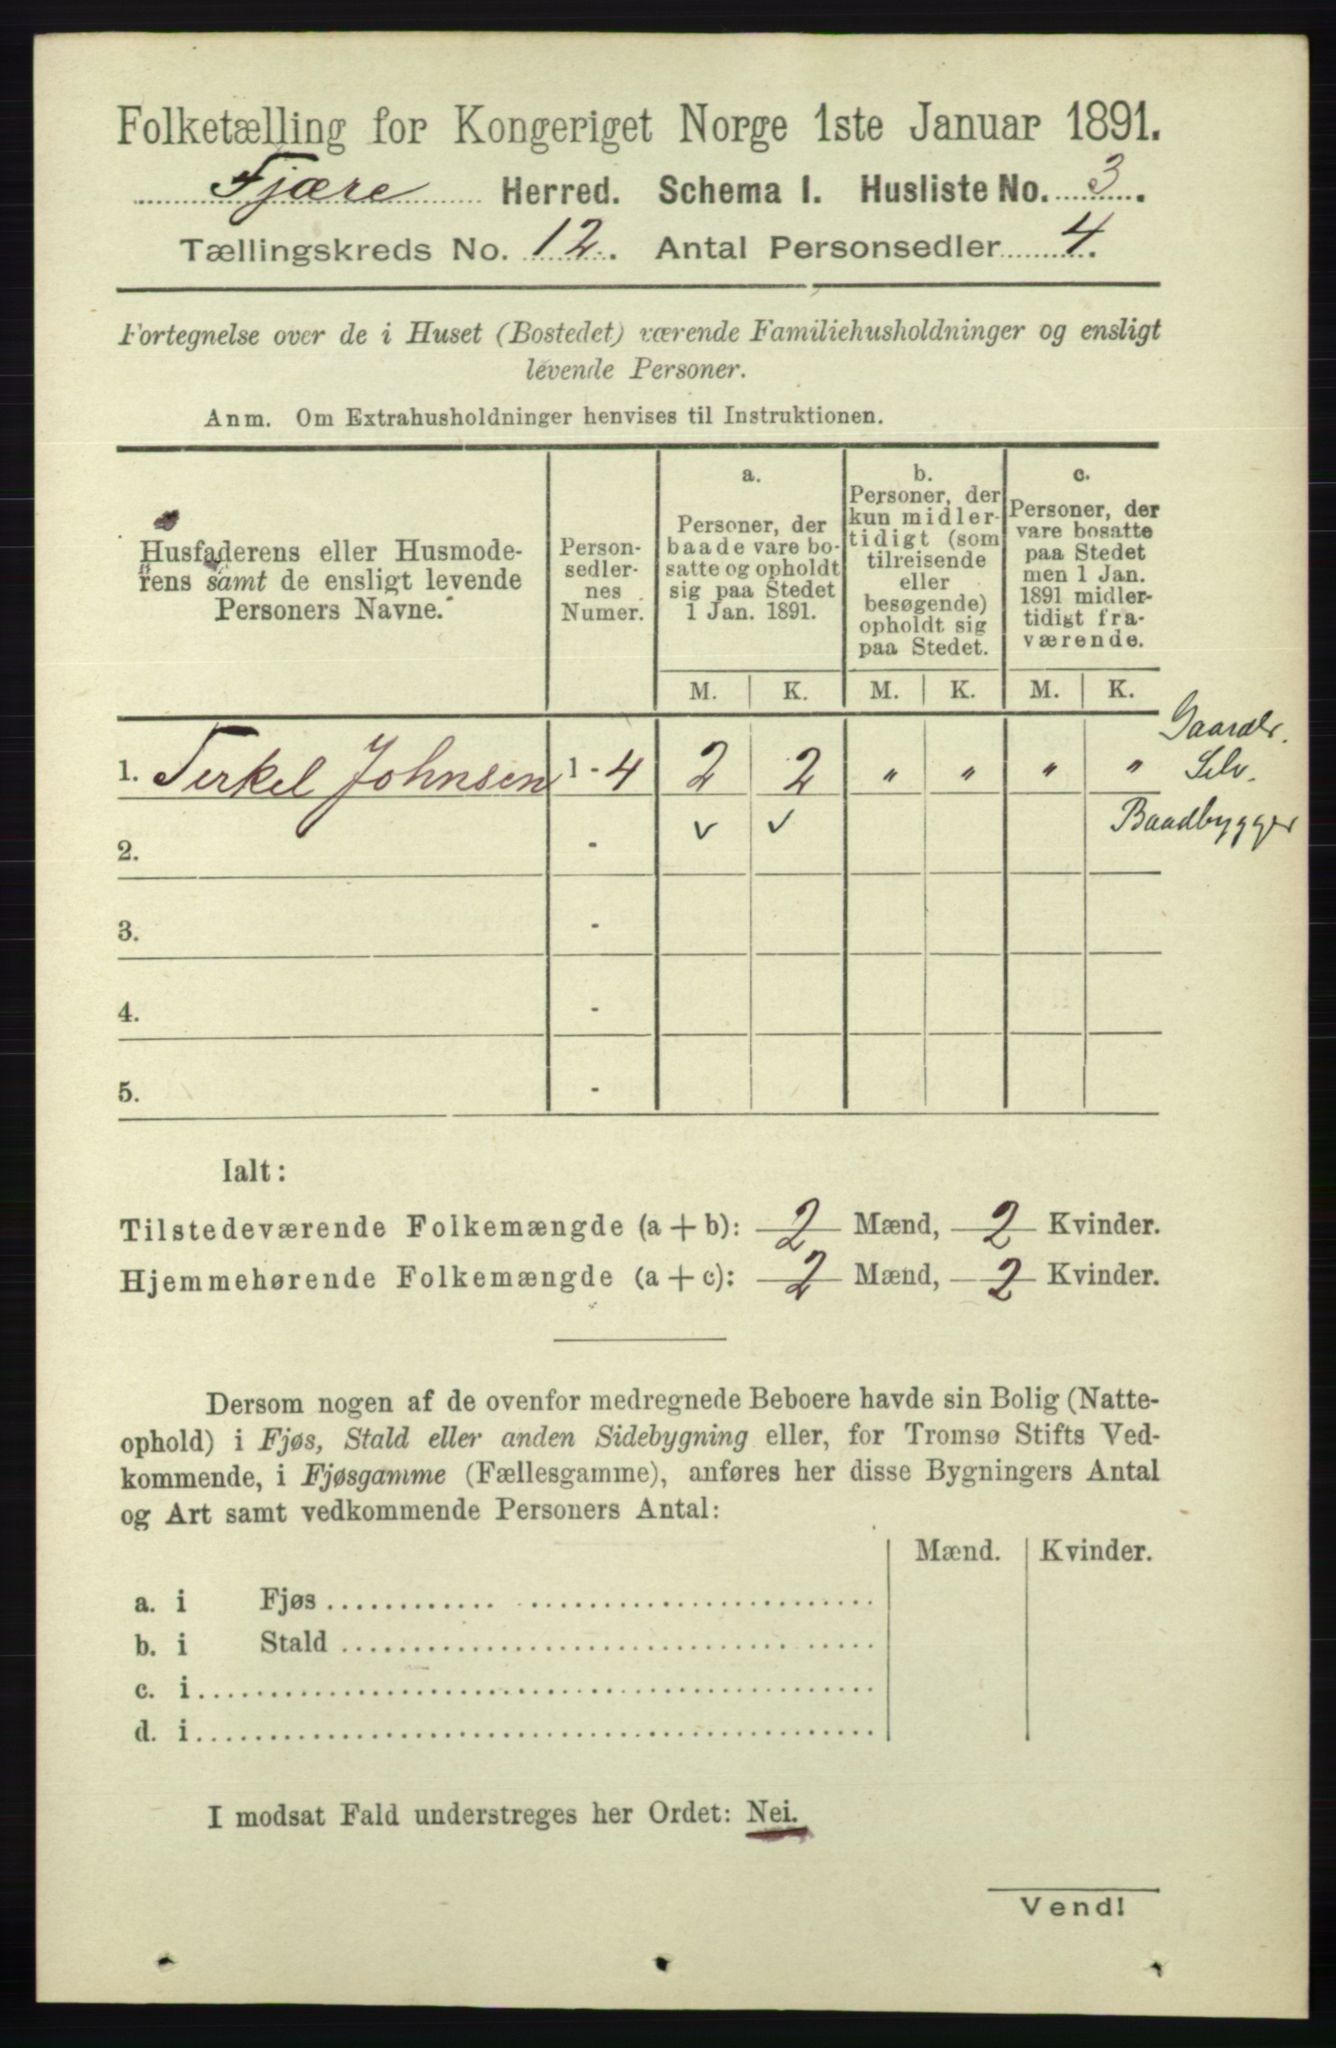 Folketælling for Kongeriget Norge 1ste Januar 1891.
Fjære Herred. Schema I. Husliste No. 3.
Tællingskreds No. 12. Antal Personsedler 4.
Fortegnelse over de i Huset (Bostedet) værende Familiehusholdninger og ensligt
levende Personer.
Anm. Om Extrahusholdninger henvises til Instruktionen.
Husfaderens eller Husmode-
rens samt de ensligt levende
Personers Navne.
Person-
sedler-
nes
Numer.
a.
Personer, der
baade vare bo-
satte og opholdt
sig paa Stedet
1 Jan. 1891.
b.
Personer, der
kun midler-
tidigt (som
tilreisende
eller
besøgende)
opholdt sig
paa Stedet.
c.
Personer, der
vare bosatte
paa Stedet
men 1 Jan.
1891 midler-
tidigt fra-
værende.
M. K. M. K. M. K.
Gaardbr.
1. Terkel Johnsen 1 - 4 2 2 " " " " Selv.
v v Baadbygger
2. -
3. -
4. -
5. -
Ialt:
Tilstedeværende Folkemængde (a + b): 2 Mænd, 2 Kvinder.
Hjemmehørende Folkemængde (a + c): 2 Mænd, 2 Kvinder.
Dersom nogen af de ovenfor medregnede Beboere havde sin Bolig (Natte-
ophold) i Fjøs, Stald eller anden Sidebygning eller, for Tromsø Stifts Ved-
kommende, i Fjøsgamme (Fællesgamme), anføres her disse Bygningers Antal
og Art samt vedkommende Personers Antal:
Mænd. Kvinder.
a. i Fjøs
b. i Stald
c. i
d. i
I modsat Fald understreges her Ordet: Nei.
Vend!